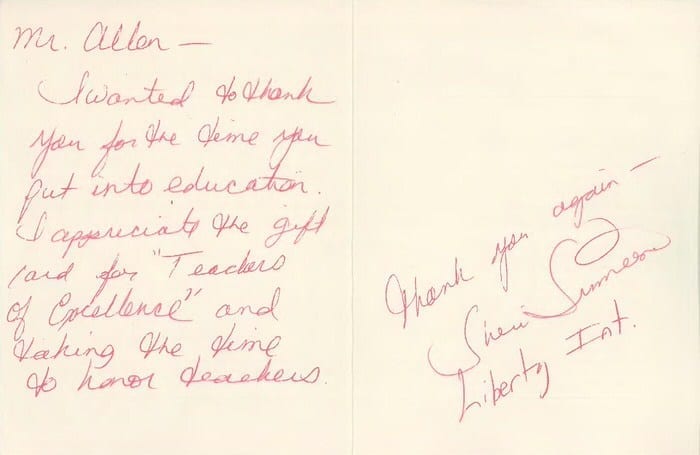 Mr. Allen —
I wanted to thank
you for the time you
put into education.
I appreciate the gift
card for "Teachers
of Excellence" and
taking the time
to honor teachers.
Thank you again —
Sheri
Liberty Int.